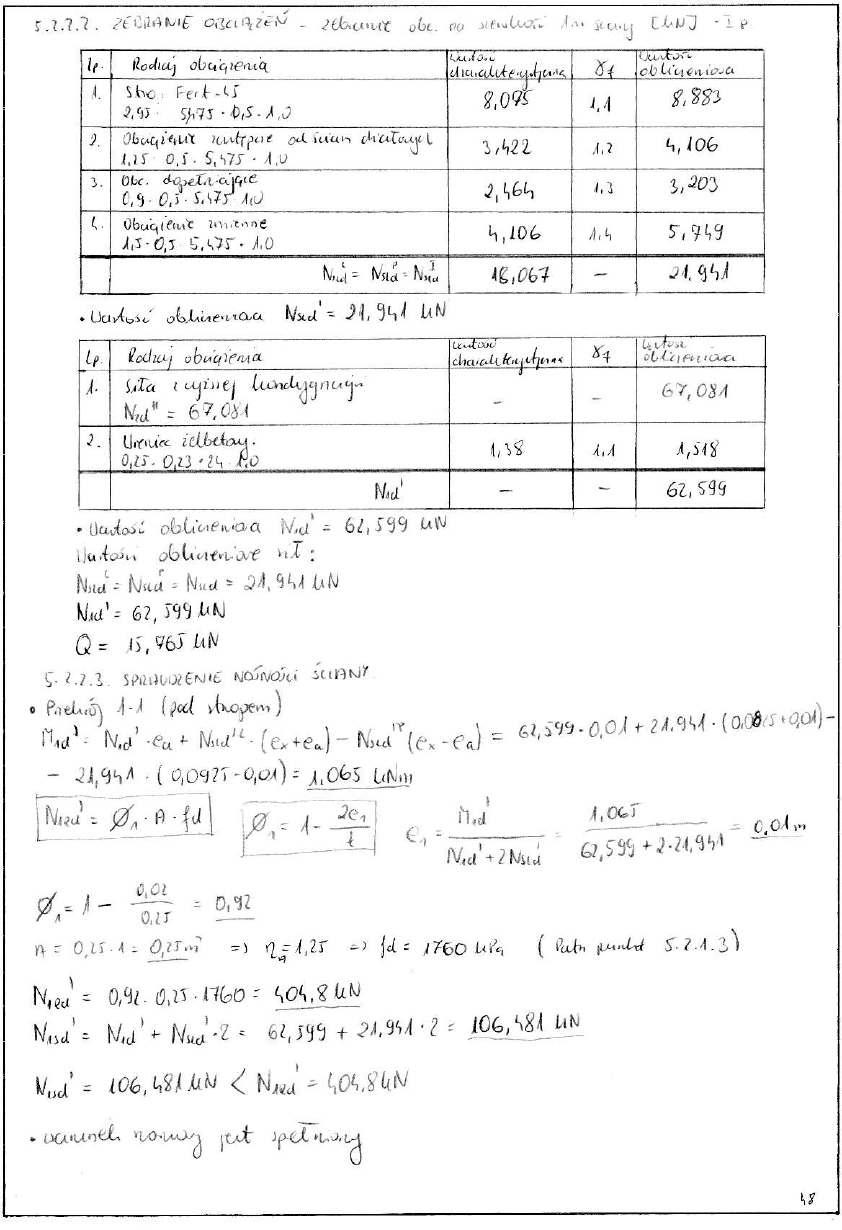 5.2.2.2. ZEBRANIE OBCIĄŻEŃ - zebranie obc. na szerokość 1m ściany [kN] - I p.
Lp. Rodzaj obciążenia Wartość charakterystyczna γf Wartość obliczeniowa
1. Strop Fert-45 8,075 1,1 8,883
2,95 · 5,475 · 0,5 · 1,0
2. Obciążenie zastępcze od ścian działowych 3,422 1,2 4,106
1,25 · 0,5 · 5,475 · 1,0
3. Obc. dopełniające 2,464 1,3 3,203
0,9 · 0,5 · 5,475 · 1,0
4. Obciążenie zmienne 4,106 1,4 5,749
1,5 · 0,5 · 5,475 · 1,0
Nsld^L = Nsld^P = Nsld^I 18,067 – 21,941
• Wartość obliczeniowa Nsld^I = 21,941 kN
Lp. Rodzaj obciążenia Wartość charakterystyczna γf Wartość obliczeniowa
1. Siła z wyższej kondygnacji – – 67,081
N2d^II = 67,081
2. Wieniec żelbetowy. 1,38 1,1 1,518
0,25 · 0,23 · 24 · 1,0
N1d^I – – 62,599
• Wartość obliczeniowa N1d^I = 62,599 kN
Wartości obliczeniowe
Nsld^L = Nsld^P = Nsld = 21,941 kN
N1d^I = 62,599 kN
Q = 15,765 kN
5.2.2.3. SPRAWDZENIE NOŚNOŚCI ŚCIANY.
• Przekrój 1-1 (pod stropem)
M1d^I = N1d^I · ea + Nsld^IL · (ex + ea) – Nsld^IP (ex - ea) = 62,599 · 0,01 + 21,941 · (0,0825 + 0,01) –
– 21,941 · (0,0925 - 0,01) = 1,065 kNm
N1Rd^I = Ø1 · A · fd Ø1 = 1 - 2e1/t e1 = M1d^I / (N1d^I + 2Nsld^I) = 1,065 / (62,599 + 2 · 21,941) = 0,01m
Ø1 = 1 – 0,02/0,25 = 0,92
A = 0,25 · 1 = 0,25m² => ηA = 1,25 => fd = 1760 kPa (Patrz punkt 5.2.1.3)
N1Rd^I = 0,92 · 0,25 · 1760 = 404,8 kN
N1sd^I = N1d^I + Nsld^I · 2 = 62,599 + 21,941 · 2 = 106,481 kN
N1sd^I = 106,481 kN < N1Rd^I = 404,8 kN
• warunek normowy jest spełniony
48